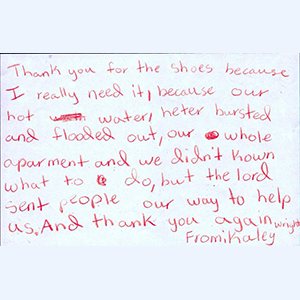 Thank you for the shoes because
I really need it, because our
hot water, heter bursted
and flooded out, our whole
aparment and we didn't kown
what to do, but the lord
sent people our way to help
us. And thank you again
From: Kaley wright